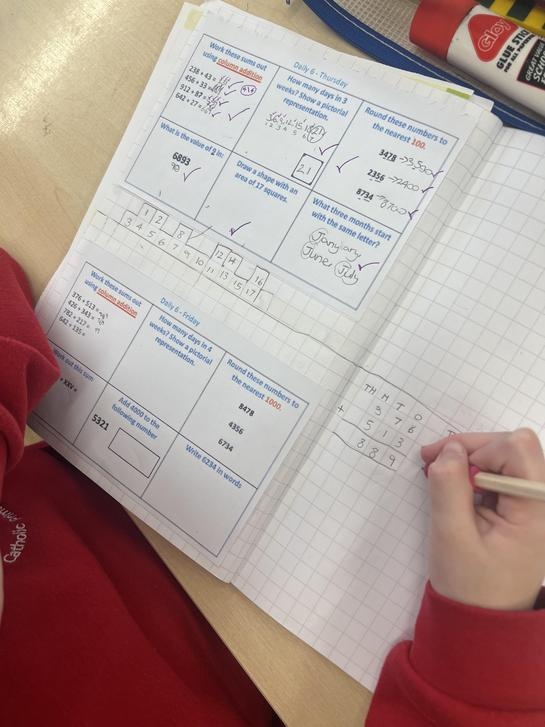 Daily 6 - Thursday
Work these sums out
using column addition
238 + 43 =
456 + 33 =
912 + 87 =
642 + 27 =
How many days in 3
weeks? Show a pictorial
representation.
21
Round these numbers to
the nearest 100.
3478 → 3500
2356 → 2400
8734 → 8700
What is the value of 9 in:
6893
90
Draw a shape with an
area of 17 squares.
What three months start
with the same letter?
January
June July
1 2 8 12 14 16
3 4 5 6 7 9 10 11 13 15 17
Daily 6 - Friday
Work these sums out
using column addition
376 + 513 =
426 + 343 =
782 + 217 =
642 + 135 =
How many days in 4
weeks? Show a pictorial
representation.
Round these numbers to
the nearest 1000.
8478
4356
6734
Work out this sum
+ XXV =
Add 4000 to the
following number
5321
Write 6234 in words
TH H T O
3 7 6
+
5 1 3
8 8 9
GLUE STICK
Catholic